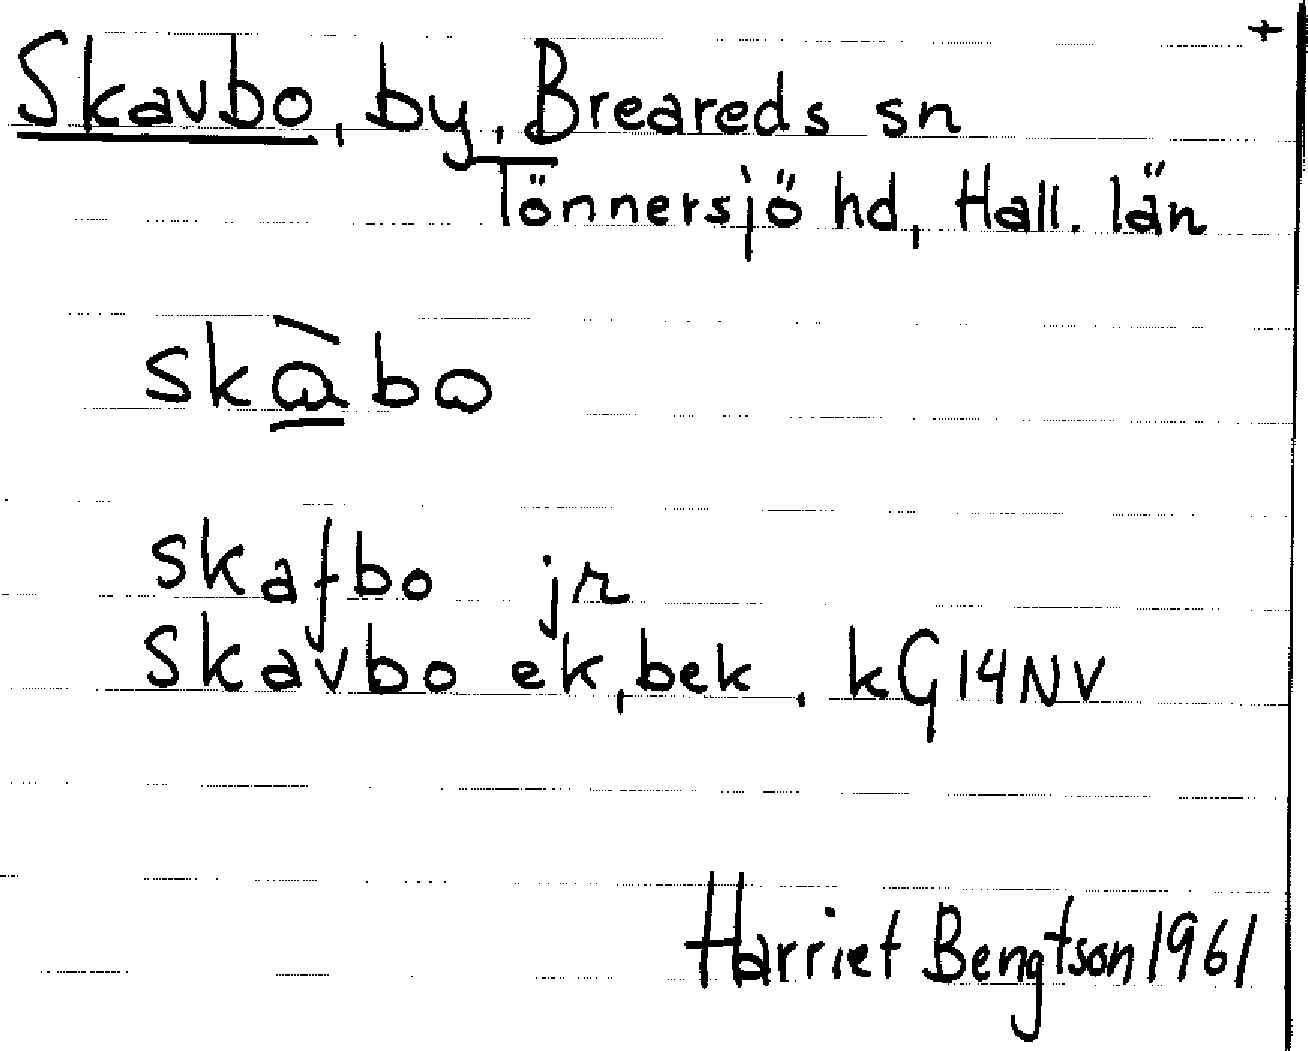 +
Skavbo, by, Breareds sn
Tönnersjö hd, Hall. län
skàbo
skafbo jr
Skavbo ek, bek, kG14NV
Harriet Bengtson 1961